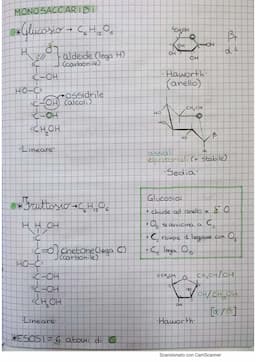 MONOSACCARIDI
*Glucosio → C₆H₁₂O₆
H
O
aldeide (lega H)
(carbonile)
C-OH
HO-C
C-OH → ossidrile
(alcoli)
C-OH
CH₂OH
·Lineare·
CH₂OH
OH
β↑
α↓
·Haworth·
(anello)
CH₂OH
HO
β
assiali
equatoriali (+ stabile)
·Sedia·
*Fruttosio → C₆H₁₂O₆
H
OH
C=O chetone (lega C)
(carbonile)
HO-C
C-OH
C-OH
CH₂OH
·Lineare·
Glucosio:
• chiude ad anello
O₅ si avvicina a C₁
C₁ rompe il legame con O₁
C₁ lega O₅
CH₂OH
CH₂OH/OH
OH/CH₂OH
[α/β]
·Haworth·
*ESOSI = 6 atomi di C
Scansionato con CamScanner